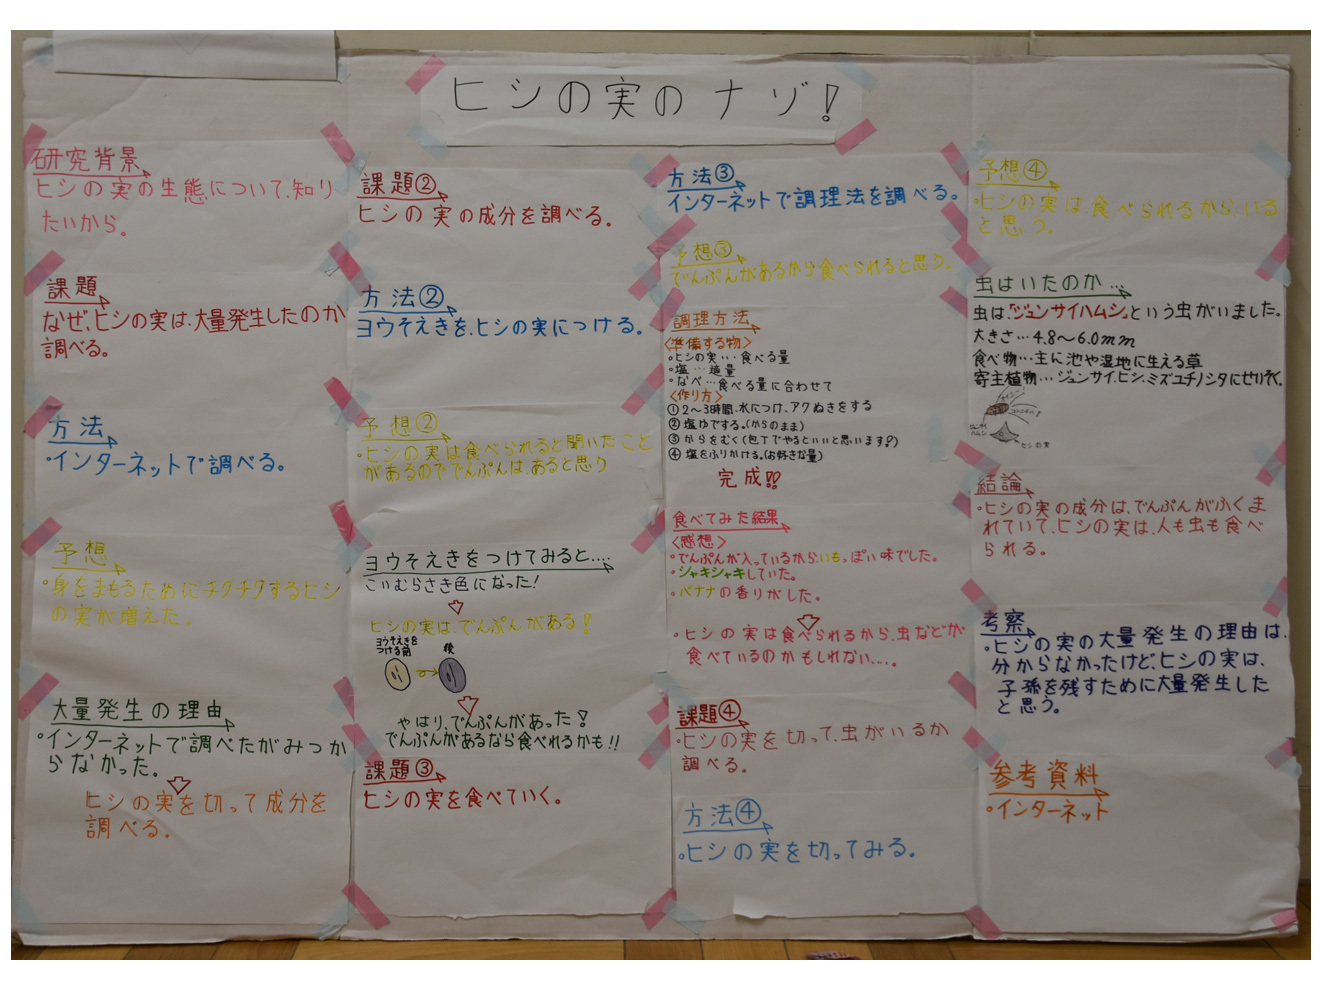 ヒシの実のナゾ!
研究背景
ヒシの実の生態について、知り
たいから。
課題
なぜ、ヒシの実は、大量発生したのか
調べる。
方法
・インターネットで調べる。
予想
・身をまもるためにチクチクするヒシ
の実が増えた。
大量発生の理由
・インターネットで調べたがみつか
らなかった。
ヒシの実を切って成分を
調べる。
課題②
ヒシの実の成分を調べる。
方法②
ヨウそえきを、ヒシの実につける。
予想②
・ヒシの実は食べられると聞いたこと
があるのででんぷんは、あると思う
ヨウそえきをつけてみると....
こいむらさき色になった!
ヒシの実は、でんぷんがある!
ヨウそえきを
つける前
後
やはり、でんぷんがあった!
でんぷんがあるなら食べれるかも!!
課題③
ヒシの実を食べていく。
方法③
インターネットで調理法を調べる。
予想③
でんぷんがあるから食べられると思う。
調理方法
<準備する物>
・ヒシの実・・・食べる量
・塩・・・適量
・なべ・・・食べる量に合わせて
<作り方>
①2~3時間、水につけ、アクぬきをする
②塩ゆでする。(からのまま)
③からをむく(包丁でやるといいと思います!)
④塩をふりかける。(お好きな量)
完成!!
食べてみた結果
<感想>
・でんぷんが入っているからいもっぽい味でした。
・シャキシャキしていた。
・バナナの香りがした。
・ヒシの実は食べられるから、虫などが
食べているのかもしれない....。
課題④
・ヒシの実を切って、虫がいるか
調べる。
方法④
・ヒシの実を切ってみる。
予想④
・ヒシの実は、食べられるから、いる
と思う。
虫はいたのか...
虫は、「ジュンサイハムシ」という虫がいました。
大きさ・・・4.8~6.0mm
食べ物・・・主に池や湿地に生える草
寄主植物・・・ジュンサイ、ヒシ、ミズユキノシタにせいそく。
ジュンサイ
ハムシ
ヒシの実
結論
・ヒシの実の成分は、でんぷんがふくま
れていて、ヒシの実は、人も虫も食べ
られる。
考察
・ヒシの実の大量発生の理由は、
分からなかったけど、ヒシの実は、
子孫を残すために大量発生した
と思う。
参考資料
・インターネット